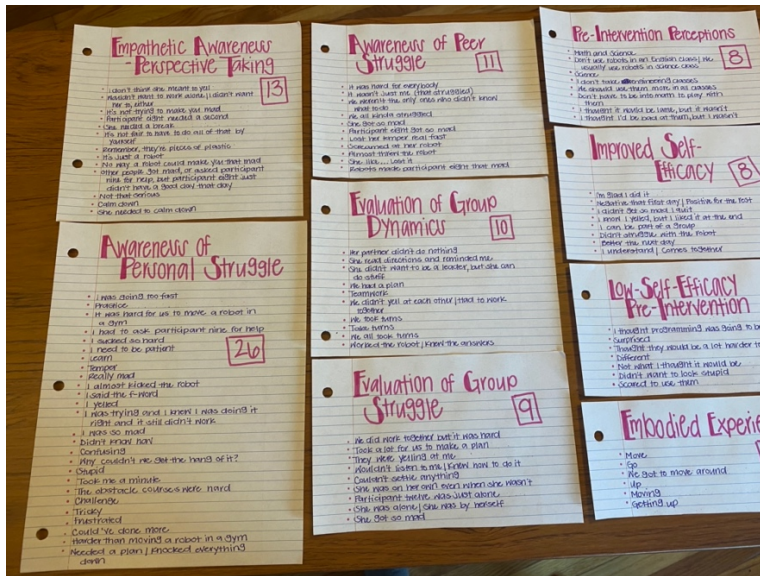 Empathetic Awareness
- Perspective Taking
13
I don't think she meant to yell
Wouldn't want to work alone / I didn't want
her to, either
It's not trying to make you mad
Participant eight needed a second
She needed a break
It's not fair to have to do all of that by
yourself
Remember, they're pieces of plastic
It's just a robot
No way a robot could make you that mad
Other people got mad, or asked participant
nine for help, but participant eight just
didn't have a good day that day
Not that serious
Calm down
She needed to calm down
Awareness of
Personal Struggle
26
I was going too fast
Practice
It was hard for us to move a robot in
a gym
I had to ask participant nine for help
I sucked so hard
I need to be patient
Learn
Temper
Really mad
I almost kicked the robot
I said the f-word
I yelled
I was trying and I knew I was doing it
right and it still didn't work
I was so mad
Didn't know how
Confusing
Why couldn't we get the hang of it?
Stupid
Took me a minute
The obstacle courses were hard
Challenge
Tricky
Frustrated
Could've done more
Harder than moving a robot in a gym
Needed a plan / Knocked everything
down
Awareness of Peer
Struggle
11
It was hard for everybody
It wasn't just me (that struggled)
We weren't the only ones who didn't know
what to do
We all kinda struggled
She got so mad
Participant eight got so mad
Lost her temper real fast
Screamed at her robot
Almost threw the robot
She like... lost it
Robots made participant eight that mad
Evaluation of Group
Dynamics
10
Her partner didn't do nothing
She read directions and reminded me
She didn't want to be a leader, but she can
do stuff
We had a plan
Teamwork
We didn't yell at each other / Had to work
together
We took turns
Take turns
We all took turns
Worked the robot / Knew the answers
Evaluation of Group
Struggle
9
We did work together but it was hard
Took a lot for us to make a plan
They were yelling at me
Wouldn't listen to me / Knew how to do it
Couldn't settle anything
She was on her own even when she wasn't
Participant twelve was just alone
She was alone / She was by herself
She got so mad
Pre-Intervention Perceptions
8
Math and Science
Don't use robots in an English class / We
usually use robots in science class
Science
I don't take engineering classes
We should use them more in all classes
Don't have to be into math to play with
them
I thought it would be lame, but it wasn't
I thought I'd be bad at them, but I wasn't
Improved Self-
Efficacy
8
I'm glad I did it
Negative that first day / Positive for the rest
I didn't get so mad I quit
I know I yelled, but I liked it at the end
I can be part of a group
Didn't struggle with the robot
Better the next day
I understand / Comes together
Low-Self-Efficacy
Pre-Intervention
I thought programming was going to be
Surprised
Thought they would be a lot harder to
Different
Not what I thought it would be
Didn't want to look stupid
Scared to use them
Embodied Experie
Move
Go
We got to move around
Up
Moving
Getting up